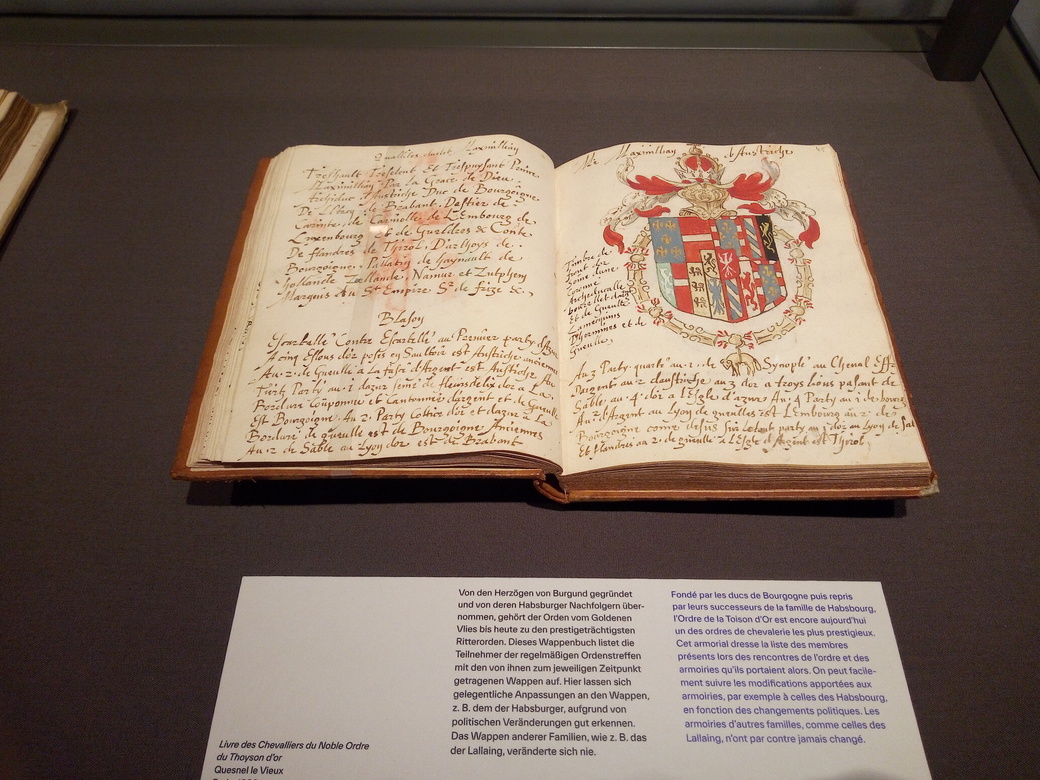 Qualitez dudit Maximillian
Treshault Tresexcelent Et Trespuysant Prince
Maximillian Par La Grace de Dieu
Archiduc d'Austriche Duc de Bourgoigne
De Lothry de Brabant De Stier de
Carinte de Carniolle de Lembourg de
Luxembourg Et de Gueldres & Conte
De flandres de Thirol, D'arthoys de
Bourgoigne Pallatin de haynault de
hollande Zellande, Namur et Zutphen
Marquis du St Empire Sr de frize &
Blason
Au 2 de Gueulle A La fasce d'Argent est Austriche
Tiers Party au 1 dazur semé de fleurs de lix dor a La
Bordure Couponnée et Cantonnée dargent et de Gueulle
Est Bourgoigne. Au 2 Party Cottice dor et dazur La
Bordure de gueulle est de Bourgoigne Anciennes
Au 2 de Sable au Lyon dor est de Brabant
Mr Maximillian d'Austriche
Timbre de
front dor
Couronne
Archeducalle
et de Gueulle
Lamequins
D'hermines et de
Gueulle
Au 3 Party quarte au 1 de Synople au Cheval Eff
Dargent au 2 daustriche au 3 dor a troys lions pasant de
Sable au 4 dor a l'Egle d'azur Au 4 Party au 1 de bourg
Au 2 d'Argent au Lyon de gueulles est Lembourg au 2 de
Bourgoigne come desus Sur Letout party au 1 dor au Lyon de Sab
Et flandres au 2 de gueulle a l'Egle d'Argent est Thirol
Livre des Chevalliers du Noble Ordre
du Thoyson d'or
Quesnel le Vieux
Von den Herzögen von Burgund gegründet
und von deren Habsburger Nachfolgern über-
nommen, gehört der Orden vom Goldenen
Vlies bis heute zu den prestigeträchtigsten
Ritterorden. Dieses Wappenbuch listet die
Teilnehmer der regelmäßigen Ordenstreffen
mit den von ihnen zum jeweiligen Zeitpunkt
getragenen Wappen auf. Hier lassen sich
gelegentliche Anpassungen an den Wappen,
z. B. dem der Habsburger, aufgrund von
politischen Veränderungen gut erkennen.
Das Wappen anderer Familien, wie z. B. das
der Lallaing, veränderte sich nie.
Fondé par les ducs de Bourgogne puis repris
par leurs successeurs de la famille de Habsbourg,
l'Ordre de la Toison d'Or est encore aujourd'hui
un des ordres de chevalerie les plus prestigieux.
Cet armorial dresse la liste des membres
présents lors des rencontres de l'ordre et des
armoiries qu'ils portaient alors. On peut facile-
ment suivre les modifications apportées aux
armoiries, par exemple à celles des Habsbourg,
en fonction des changements politiques. Les
armoiries d'autres familles, comme celles des
Lallaing, n'ont par contre jamais changé.